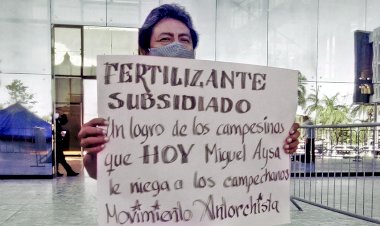 FERTILIZANTE
SUBSIDIADO
Un logro de los campesinos
que HOY Miguel Aysa
le niega a los campechanos
Movimiento Antorchista